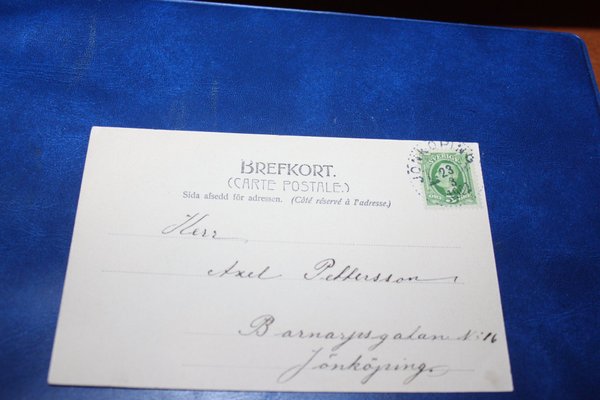 BREFKORT.
(CARTE POSTALE.)
Sida afsedd för adressen. (Côté réservé à l'adresse.)
JÖNKÖPING
23
3
SVERIGE
5
Herr
Axel Pettersson
Barnarpsgatan N:16
Jönköping.